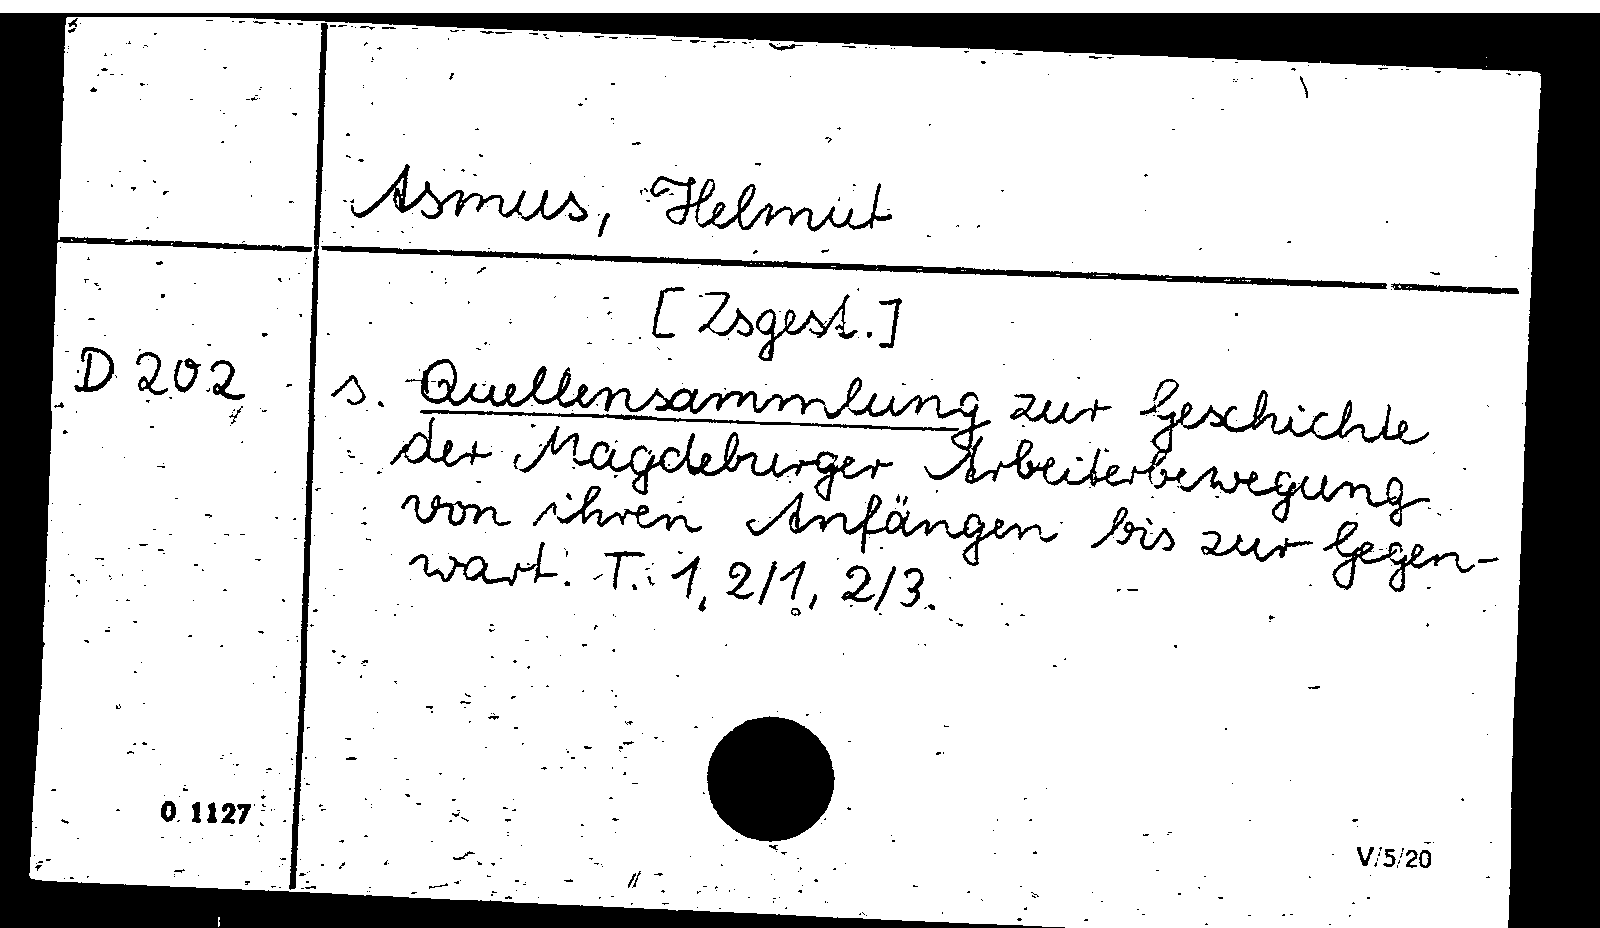 Asmus, Helmut
[Zsgest.]
D 202
s. Quellensammlung zur Geschichte
der Magdeburger Arbeiterbewegung
von ihren Anfängen bis zur Gegen-
wart. T. 1, 2/1, 2/3.
0 1127
V/5/20